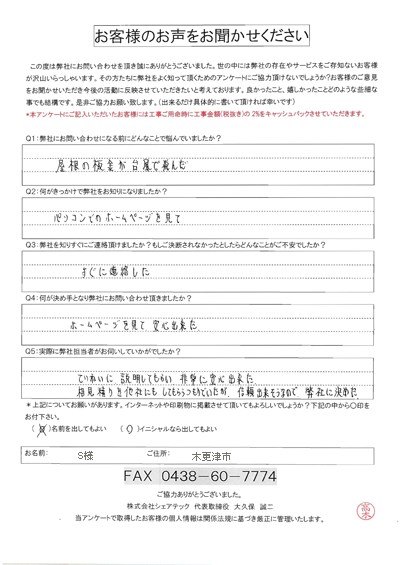 お客様のお声をお聞かせください
この度は弊社にお問い合わせを頂き誠にありがとうございました。世の中には弊社の存在やサービスをご存知ないお客様
が沢山いらっしゃいます。その方たちに弊社をよく知って頂くためのアンケートにご協力頂けないでしょうか?お客様のご意見
をお聞かせいただき今後の活動に反映させていただきたいと考えております。良かったこと、嬉しかったことどのような些細な
事でも結構です。是非ご協力お願い致します。(出来るだけ具体的に書いて頂ければ幸いです)
*本アンケートにご記入いただいたお客様には工事ご用命時に工事金額(税抜き)の 2%をキャッシュバックさせていただきます。
Q1:弊社にお問い合わせになる前にどんなことで悩んでいましたか?
屋根の板金が台風で飛んだ
Q2:何がきっかけで弊社をお知りになりましたか?
パソコンでのホームページを見て
Q3:弊社を知りすぐにご連絡頂けましたか?もしご決断されなかったとしたらどんなことがご不安でしたか?
すぐに連絡した
Q4:何が決め手となり弊社にお問い合わせ頂きましたか?
ホームページを見て 安心出来た
Q5:実際に弊社担当者がお伺いしていかがでしたか?
ていねいに 説明してもらい 非常に安心出来た
相見積りを他社にも してもらうつもりでいたが、信頼出来そうなので 弊社に決めた
*上記についてお願いがあります。インターネットや印刷物に掲載させて頂いてもよろしいでしょうか?下記の中から〇印を
お付下さい。
( )名前を出してもよい ( 〇 )イニシャルなら出してもよい
お名前: S様 ご住所: 木更津市
FAX 0438-60-7774
ご協力ありがとうございました。
株式会社シェアテック 代表取締役 大久保 誠二
当アンケートで取得したお客様の個人情報は関係法規に基づき厳正に管理いたします。